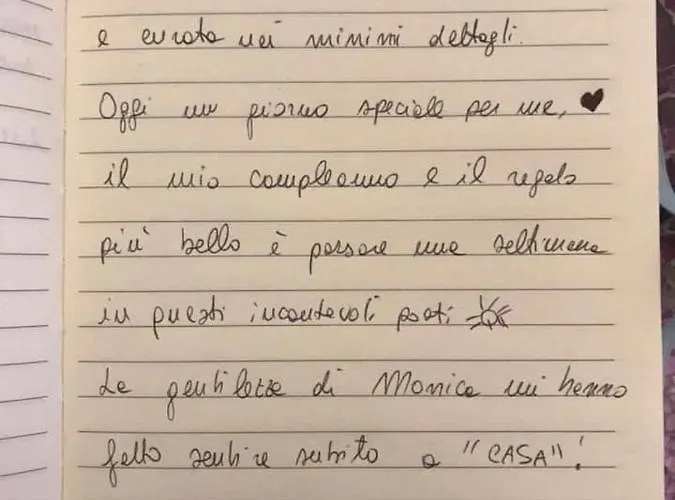 e curata nei minimi dettagli.
Oggi un giorno speciale per me, ♥
il mio compleanno e il regalo
più bello è passare una settimana
in questi incantevoli posti
Le gentilezze di Monica mi hanno
fatto sentire subito a "CASA"!